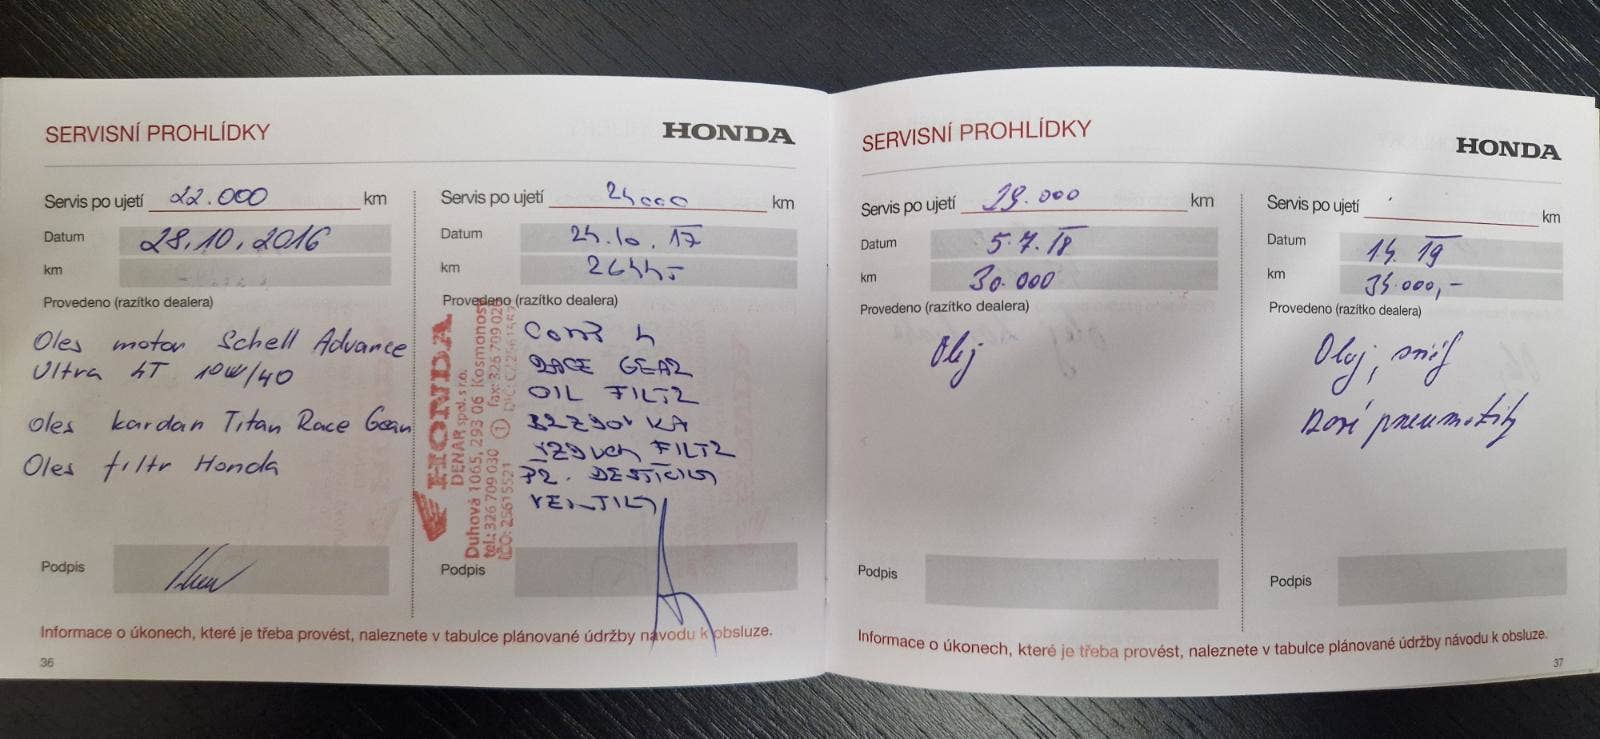 SERVISNÍ PROHLÍDKY
HONDA
Servis po ujetí 22.000 km
Datum 28.10.2016
km
Provedeno (razítko dealera)
Oles motor Schell Advance
Ultra 4T 10W/40
Oles kardan Titan Race Gear
Oles filtr Honda
Podpis
Servis po ujetí 24000 km
Datum 24.10.17
km 26445
Provedeno (razítko dealera)
HONDA
DENAR spol. s r.o.
Duhová 1065, 293 06 Kosmonosy
tel.: 326 709 030 fax: 326 709 020
IČO: 25615521
RACE GEAR
OIL FILTR
VZDUCH FILTR
VENTILY
Podpis
Informace o úkonech, které je třeba provést, naleznete v tabulce plánované údržby návodu k obsluze.
36
SERVISNÍ PROHLÍDKY
HONDA
Servis po ujetí 29.000 km
Datum 5.7.18
km 30.000
Provedeno (razítko dealera)
Olej
Podpis
Servis po ujetí km
Datum 14. 19
km 34.000,-
Provedeno (razítko dealera)
Olej,
pneumatiky
Podpis
Informace o úkonech, které je třeba provést, naleznete v tabulce plánované údržby návodu k obsluze.
37